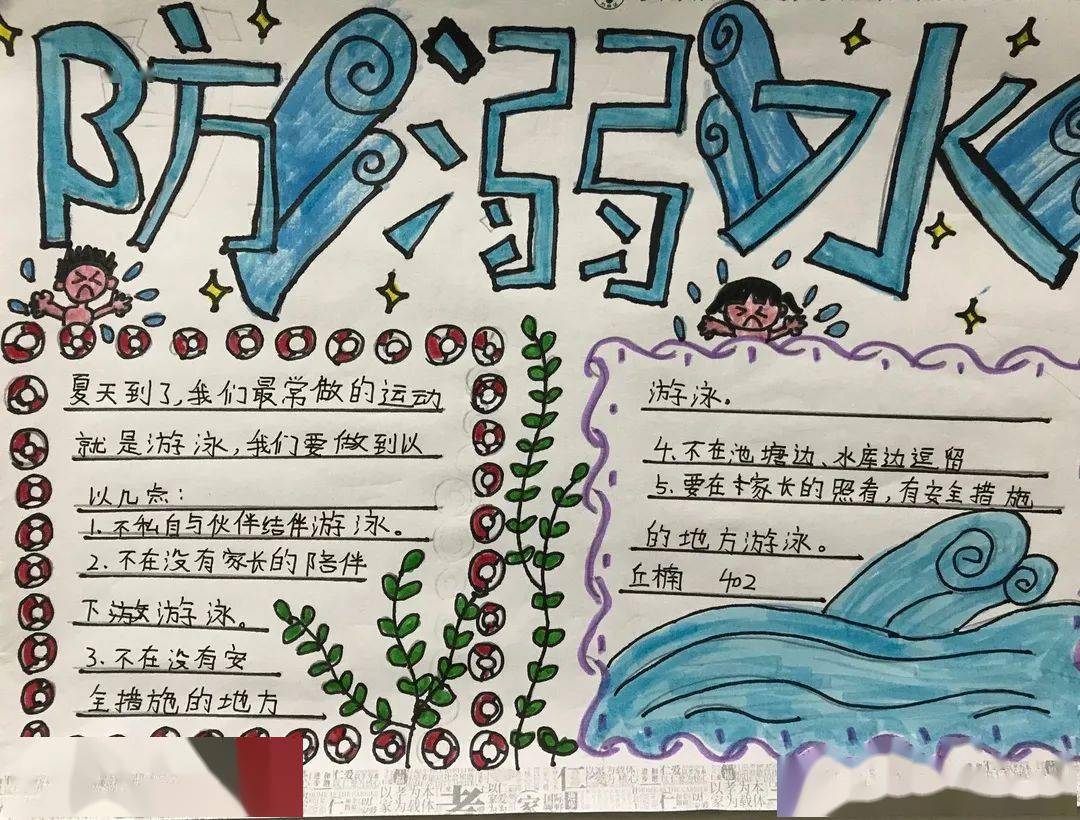 防溺水
夏天到了,我们最常做的运动
就是游泳,我们要做到以
以几点:
1.不私自与伙伴结伴游泳。
2.不在没有家长的陪伴
下游游泳。
3.不在没有安
全措施的地方
游泳。
4.不在池塘边、水库边逗留
5.要在家长的照看,有安全措施
的地方游泳。
丘楠 402